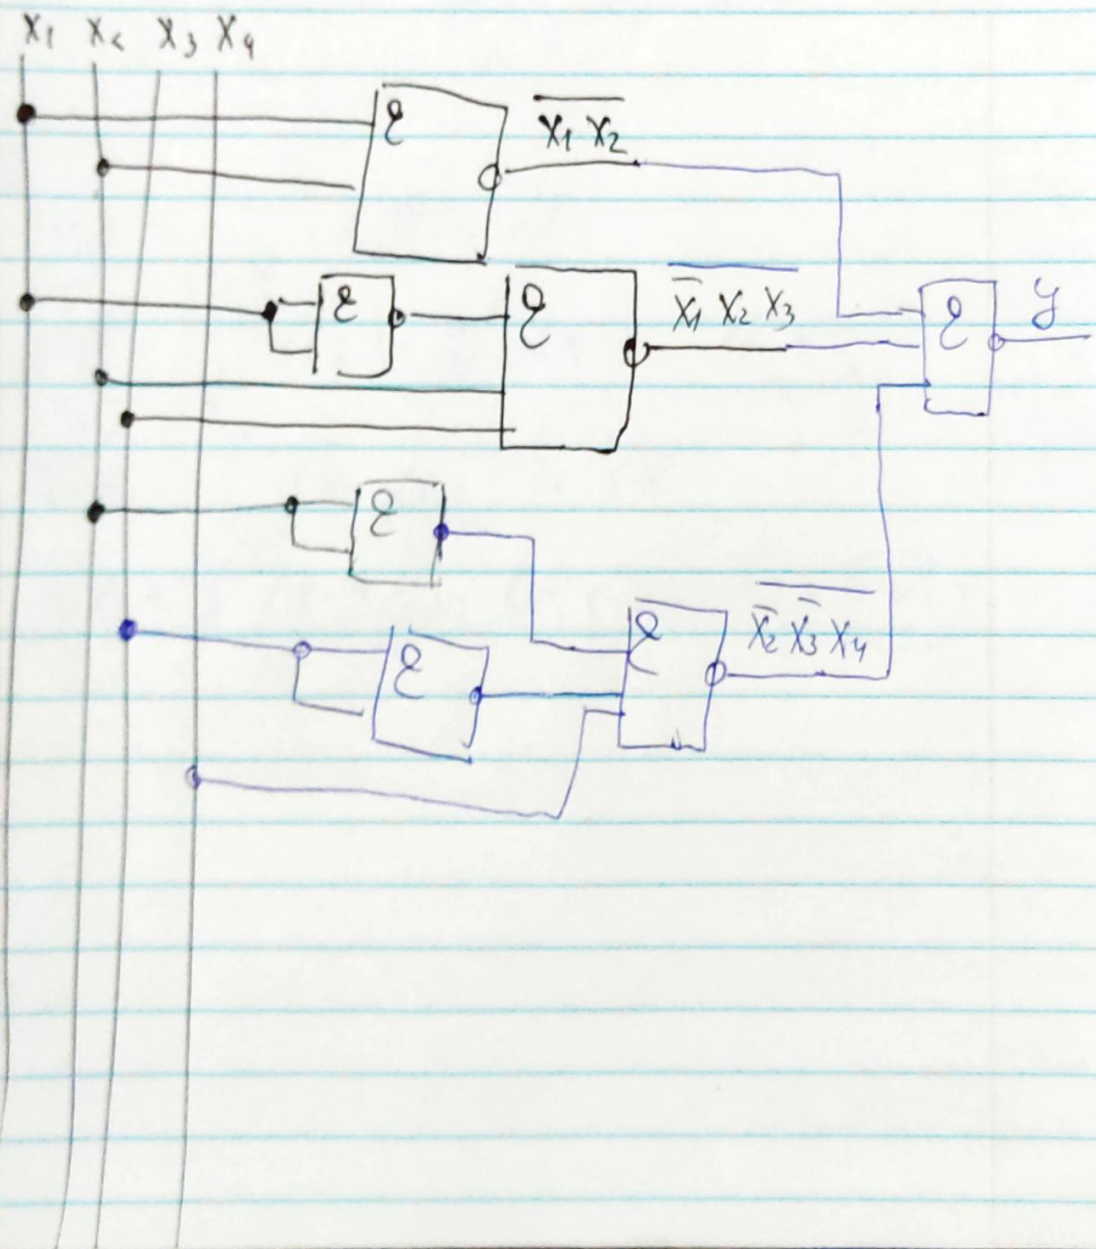 x₁ x₂ x₃ x₄
&
$\overline{x_1 x_2}$
& & $\overline{\overline{x_1} x_2 x_3}$ & y
&
& & $\overline{\overline{x_2}\,\overline{x_3} x_4}$